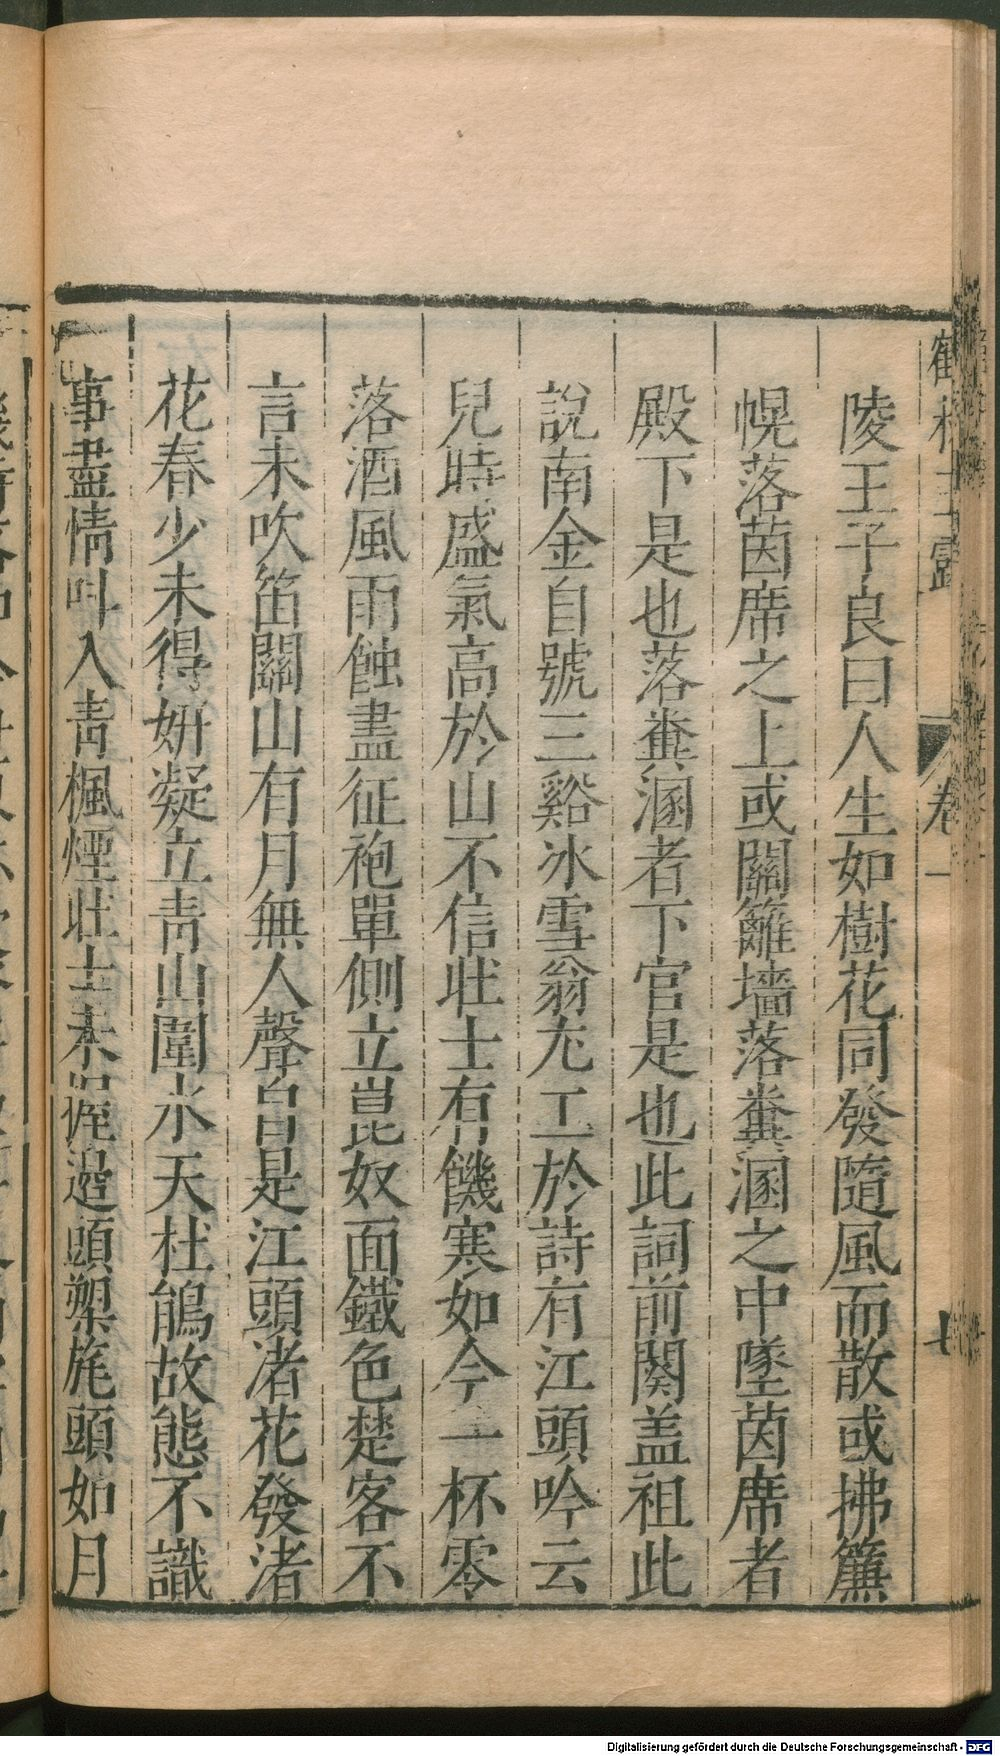 陵王子良曰人生如樹花同發隨風而散或拂簾
幌落茵席之上或關籬墻落糞溷之中墜茵席者
殿下是也落糞溷者下官是也此詞前闋盖祖此
說南金自號三谿冰雪翁尤工於詩有江頭吟云
兒時盛氣高於山不信壯士有饑寒如今一杯零
落酒風雨蝕盡征袍單側立崑奴面鐵色楚客不
言未吹笛關山有月無人聲皆是江頭渚花發渚
花春少未得妍凝立青山圍水天杜鵑故態不識
事盡情叫入青楓煙壯士未握過頭槊旄頭如月
卷一
Digitalisierung gefördert durch die Deutsche Forschungsgemeinschaft - DFG